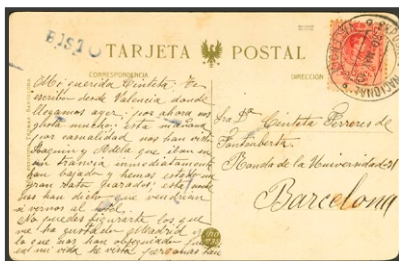 TARJETA POSTAL
CORRESPONDENCIA
DIRECCIÓN
Mi querida Cinteta; Te
escribo desde Valencia donde
llegamos ayer; por ahora nos
gusta mucho; esta mañana
por casualidad nos han visto
Joaquin y Adela que iban
en tranvia inmediatamente
han bajado y hemos estado un
gran rato parados; esta
nos han dicho que vendrian
á vernos al
No puedes figurarte los que
me ha gustado Madrid
lo que nos han obsequiado
en mi vida he visto personas tan
Sra Da Cinteta Ferreres de
Fontanberta
Ronda de la Universidad 21
Barcelona